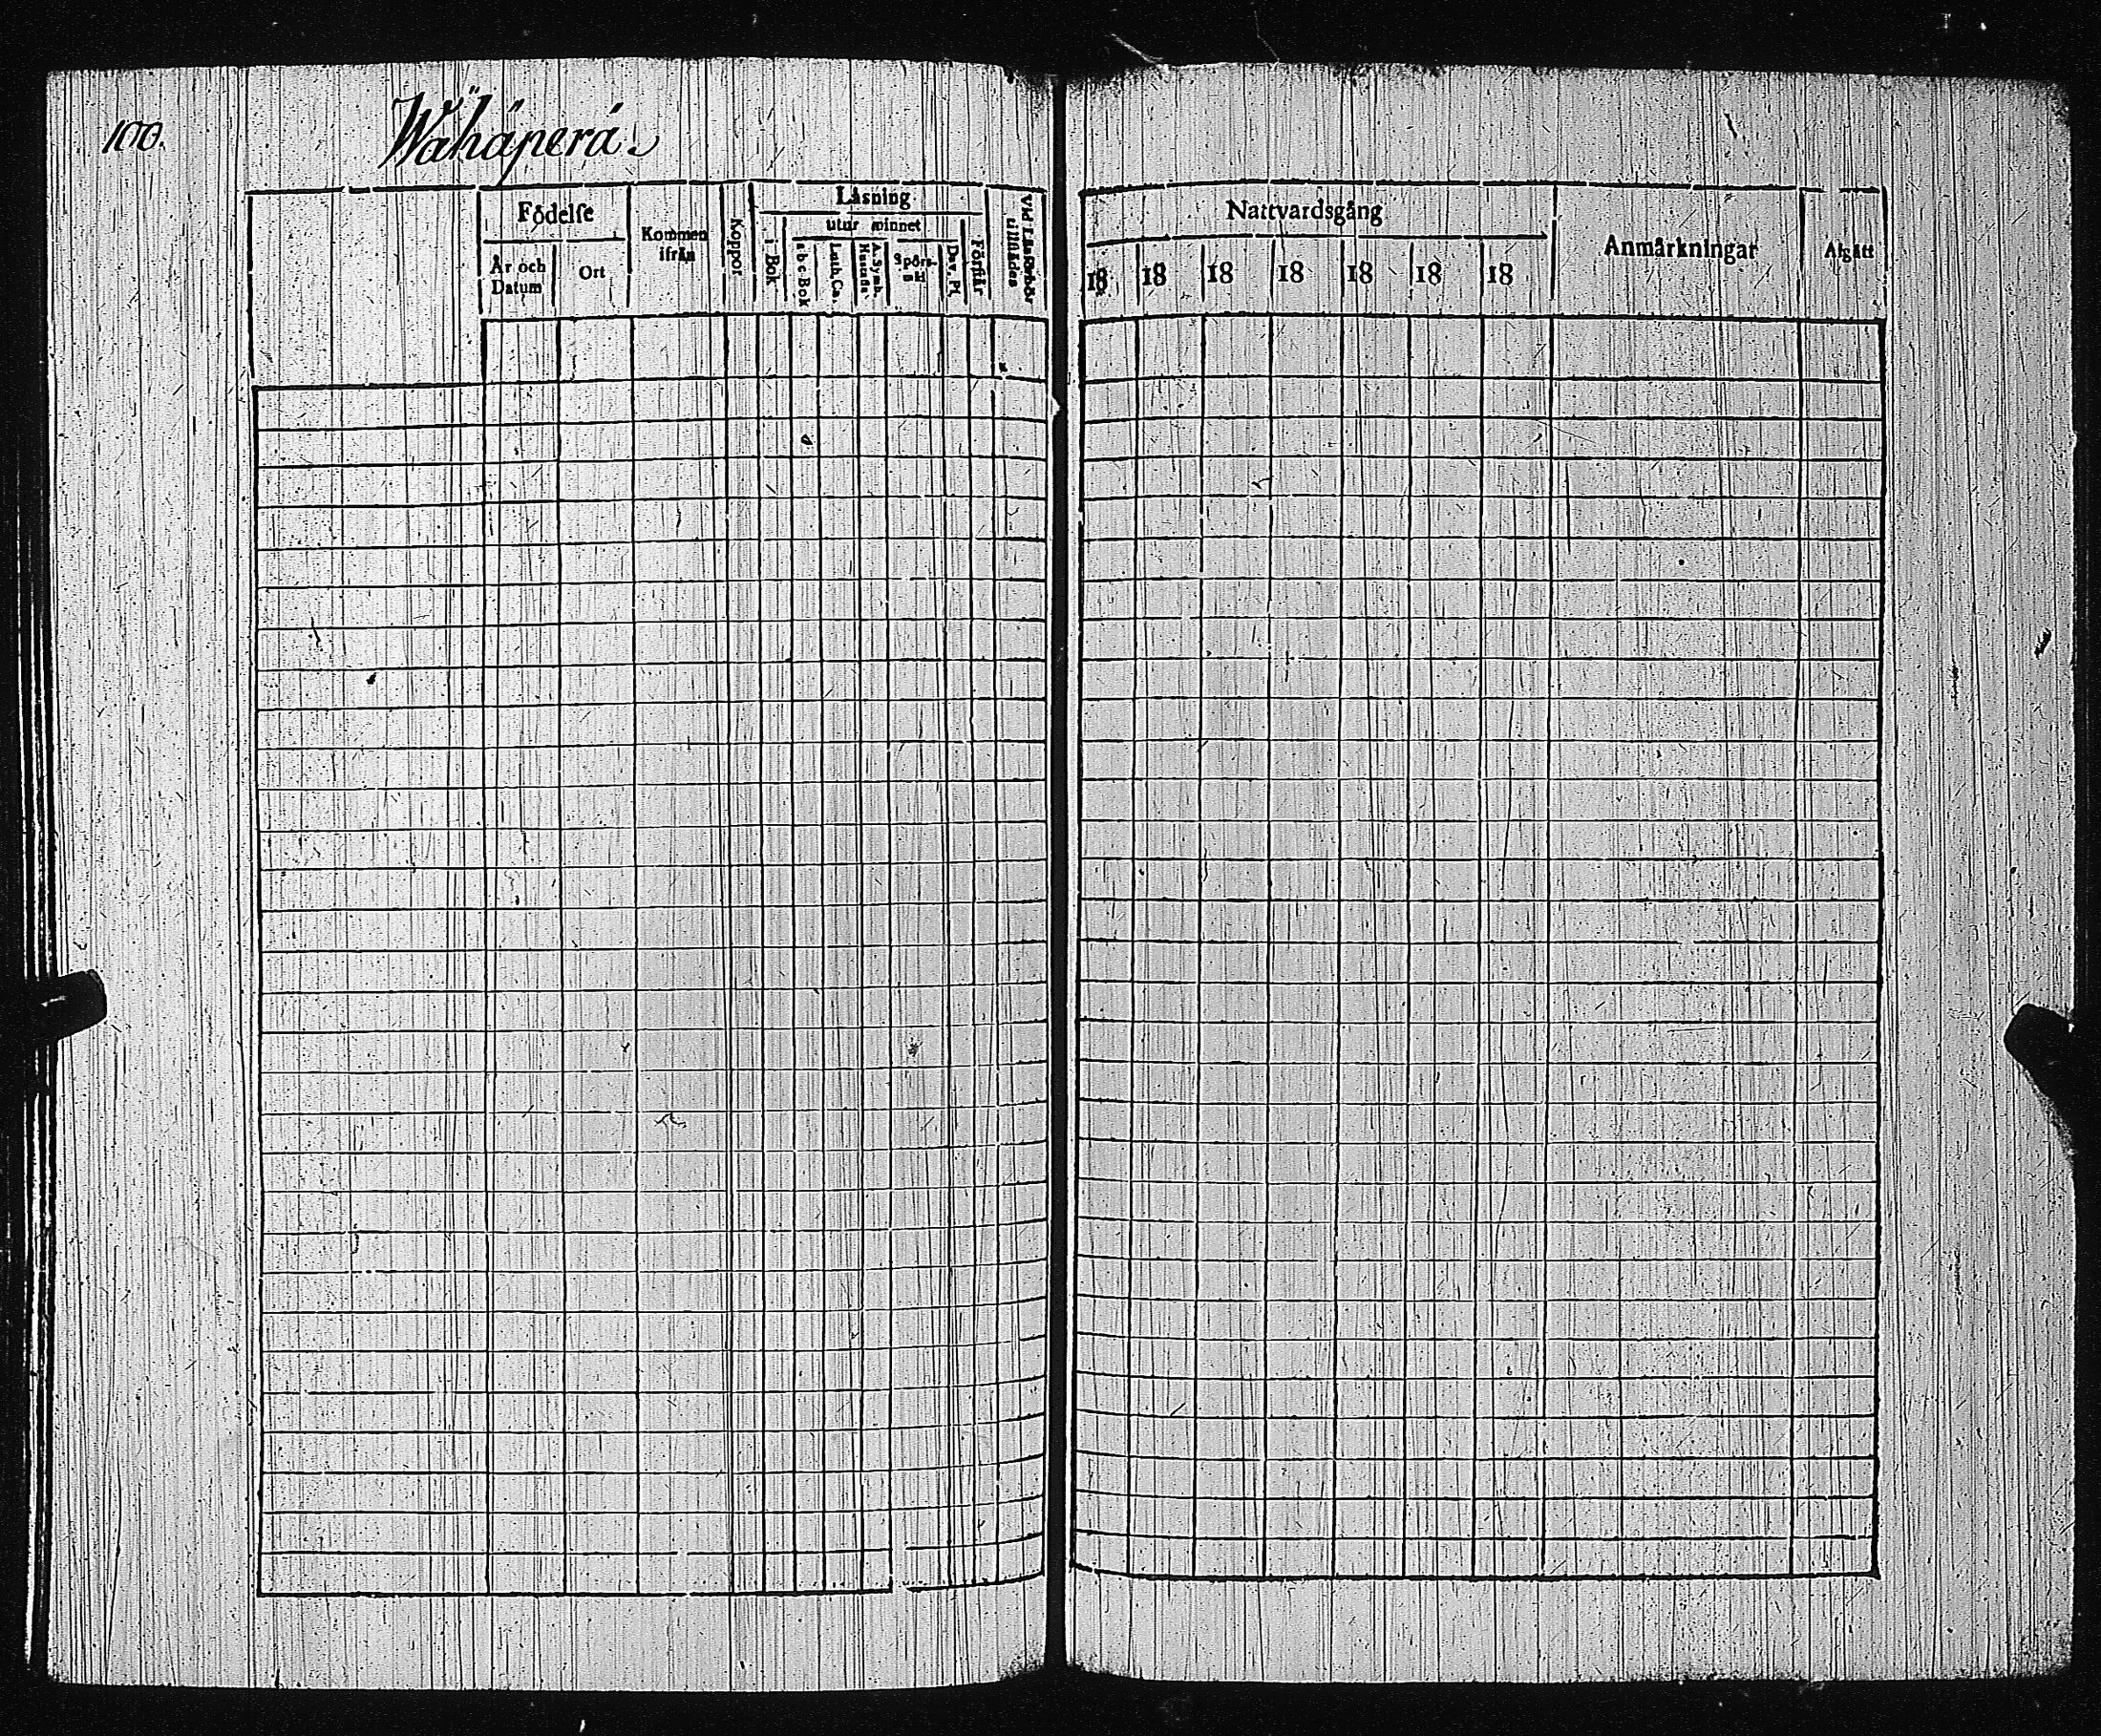 100.
Wähäperä.
Födelse
År och Datum
Ort
Kommen ifrån
Koppor
Läsning
i Bok
utur minnet
a b c Bok
Luth. Ca.
A. Symb. Hustafla
Spörs-mål
Dav. Ps.
Förstår
Vid Läsförhör tillstädes
Nattvardsgång
18 18 18 18 18 18 18
Anmärkningar
Afgått